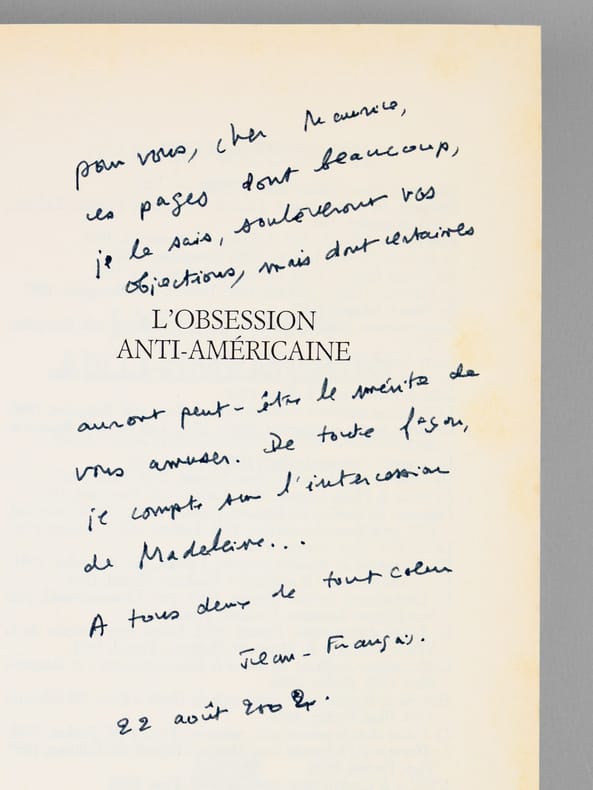 pour vous, cher Maurice,
ces pages dont beaucoup,
je le sais, soulèveront vos
objections, mais dont certaines
L'OBSESSION
ANTI-AMÉRICAINE
auront peut-être le mérite de
vous amuser. De toute façon,
je compte sur l'intercession
de Madeleine...
A tous deux de tout coeur
Jean-François.
22 août 2002.